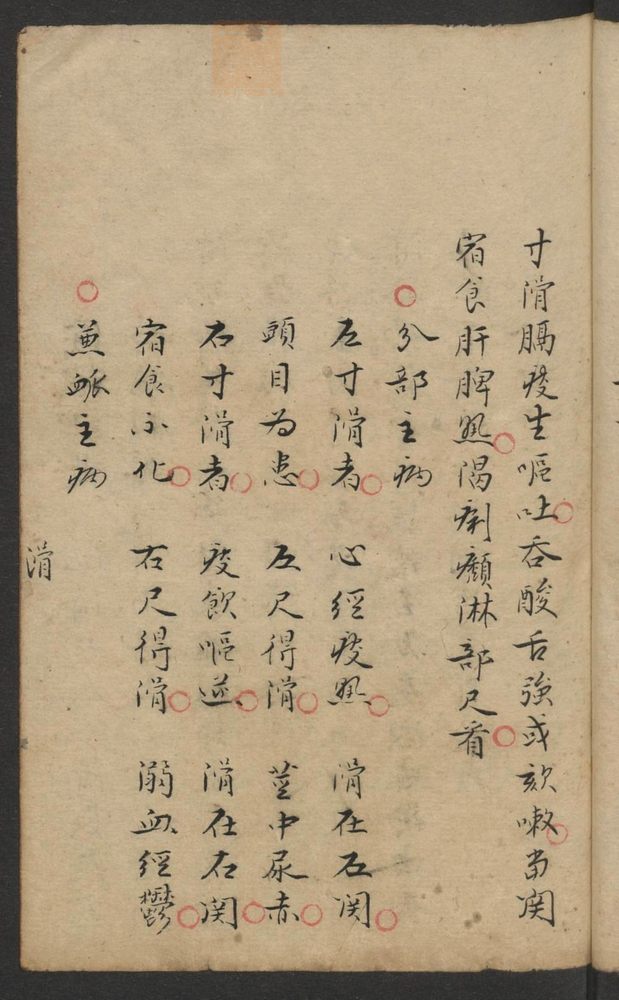 寸滑膈痰生嘔吐吞酸舌強或欬嗽当関
宿食肝脾熱渴痢癲淋部尺看
分部主病
左寸滑者心經痰熱滑在左関
頭目为患左尺得滑莖中尿赤
右寸滑者痰飲嘔逆滑在右関
宿食不化右尺得滑溺血經鬱
兼脈主病
滑